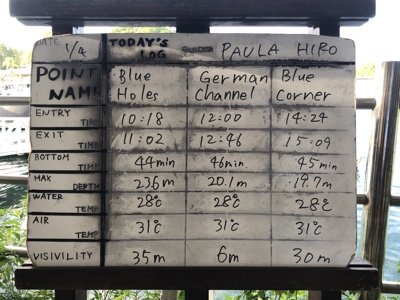 DATE 1/4 TODAY'S LOG GUIDE PAULA HIRO
POINT NAME Blue Holes German Channel Blue Corner
ENTRY TIME 10:18 12:00 14:24
EXIT TIME 11:02 12:46 15:09
BOTTOM TIME 44min 46min. 45min
MAX DEPTH 23.6m 20.1m 19.7m
WATER TEMP 28℃ 28℃ 28℃
AIR TEMP 31℃ 31℃ 31℃
VISIVILITY 35m 6m 30m